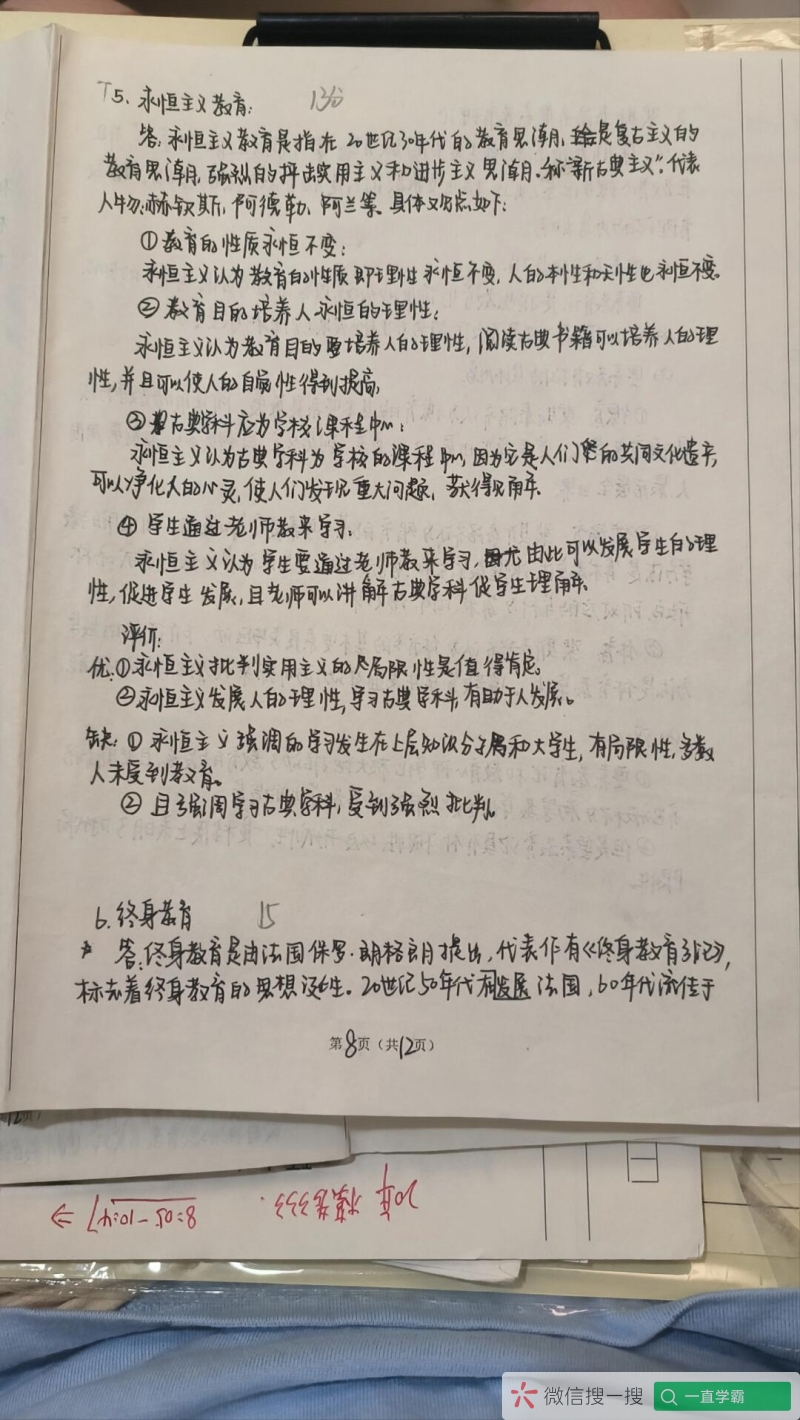 5. 永恒主义教育: 13分
答: 永恒主义教育是指在20世纪30年代的教育思潮, 是复古主义的
教育思潮, 强烈的抨击实用主义和进步主义思潮. 称"新古典主义". 代表
人物: 赫钦斯, 阿德勒, 阿兰等. 具体观点如下:
①教育的性质永恒不变:
永恒主义认为教育的性质即理性永恒不变, 人的本性和天性也永恒不变。
②教育目的培养人永恒的理性:
永恒主义认为教育目的要培养人的理性, 阅读古典书籍可以培养人的理
性, 并且可以使人的自身性得到提高,
③古典学科应为学校课程中心:
永恒主义认为古典学科为学校的课程中心, 因为它是人们的共同文化遗产,
可以净化人的心灵, 使人们发现重大问题, 获得见解.
④学生通过老师教来学习:
永恒主义认为学生要通过老师教来学习, 由此可以发展学生的理
性, 促进学生发展, 且老师可以讲解古典学科促学生理解.
评价:
优: ①永恒主义批判实用主义的局限性是值得肯定。
②永恒主义发展人的理性, 学习古典学科, 有助于人发展。
缺: ①永恒主义强调的学习发生在上层知识分子层和大学生, 有局限性, 多数
人未受到教育。
②且强调学习古典学科, 受到强烈批判。
6. 终身教育 15
答: 终身教育是由法国保罗·朗格朗提出, 代表作有《终身教育引论》,
标志着终身教育的思想诞生. 20世纪50年代发展法国, 60年代流传于
第8页（共12页）
8:05-10:47
微信搜一搜
一直学霸